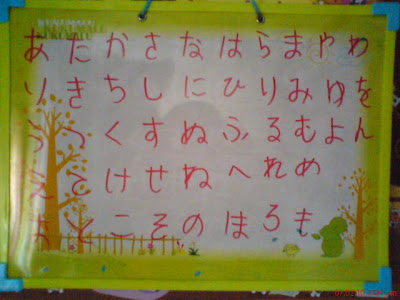 あたかさなはらまやわ
いきちしにひりみゆを
うつくすぬふるむよん
えてけせねへれめ
おとこそのほろも